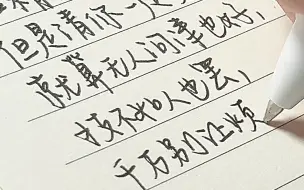 但是请你一
就算无人问津也好,
技不如人也罢,
千万别让烦